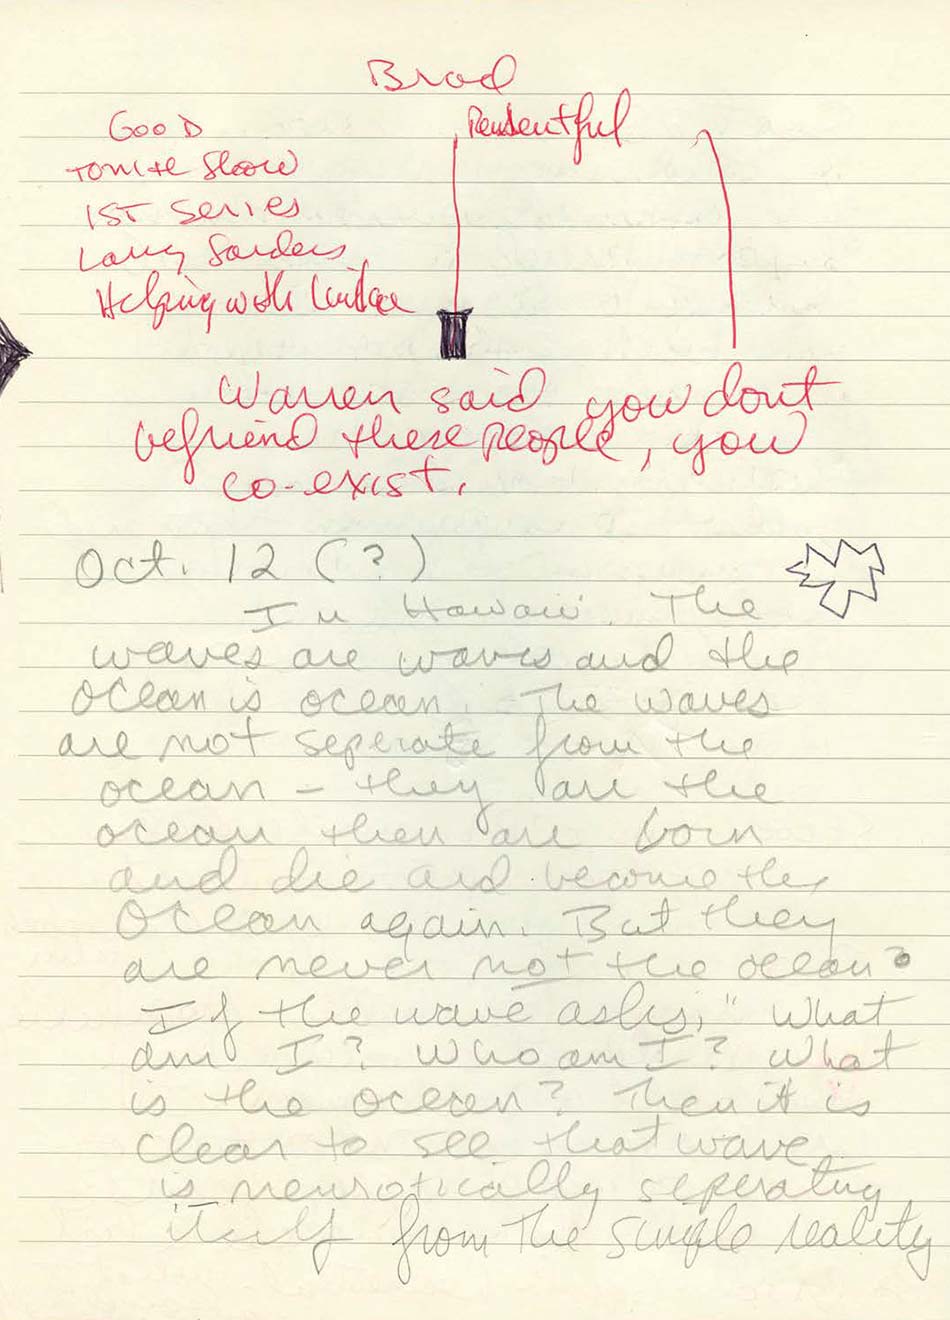 Brad
GOOD Resentful
Tonite Show
1ST Series
Larry Sanders
Helping with Linda
Warren said you dont
befriend these people, you
co-exist.
Oct. 12 (?)
In Hawaii. The
waves are waves and the
ocean is ocean. The waves
are not seperate from the
ocean – they are the
ocean then are born
and die and become the
Ocean again. But they
are never not the ocean.
If the wave asks, "What
am I? Who am I? What
is the ocean? Then it is
clear to see that wave
is neurotically seperating
itself from the simple reality